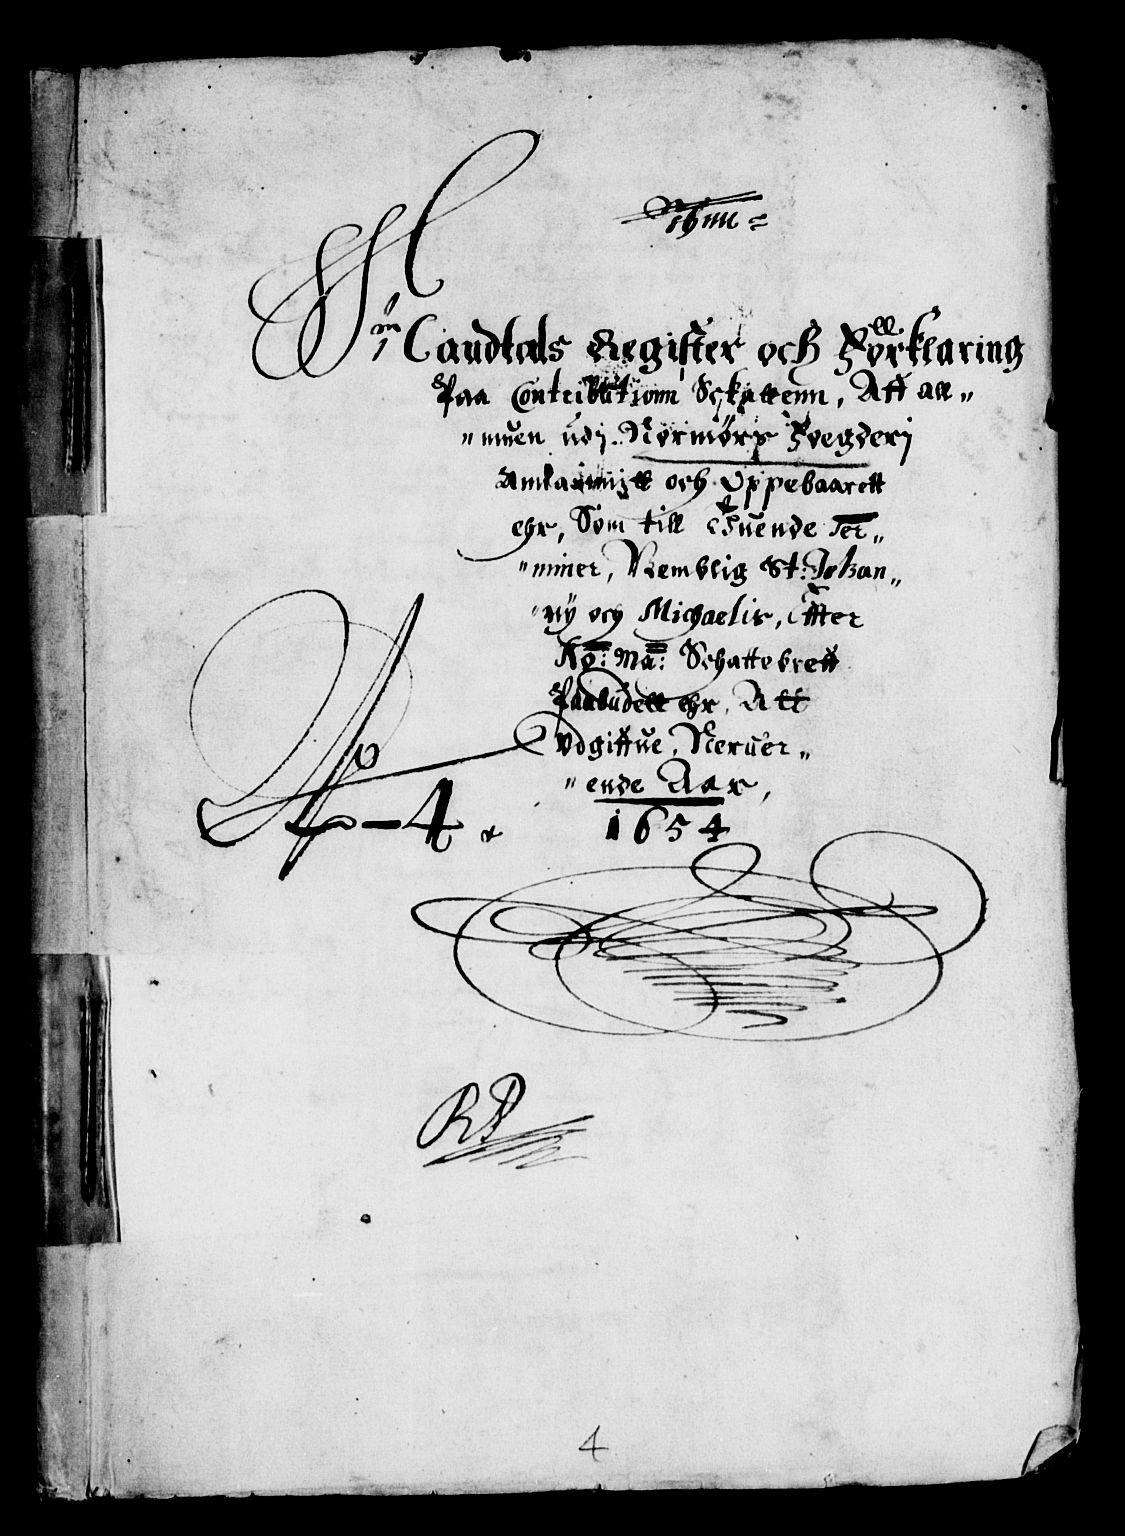 Mandtals Register och Förklaring
Paa Contributionn Schattenn, Aff all„
„muen udj Normørs Fogderj
Andammitt och Oppebaarett
ehr, Som till Tuende Ter„
„miner, Nemblig St: Johan„
„nÿ och Michaelis, Efter
Ko: Ma: Schattebreff
Paabudett ehr, Att
Vdgiffue, Neruer„
„ende Aar,
1654
No
4
RP
4